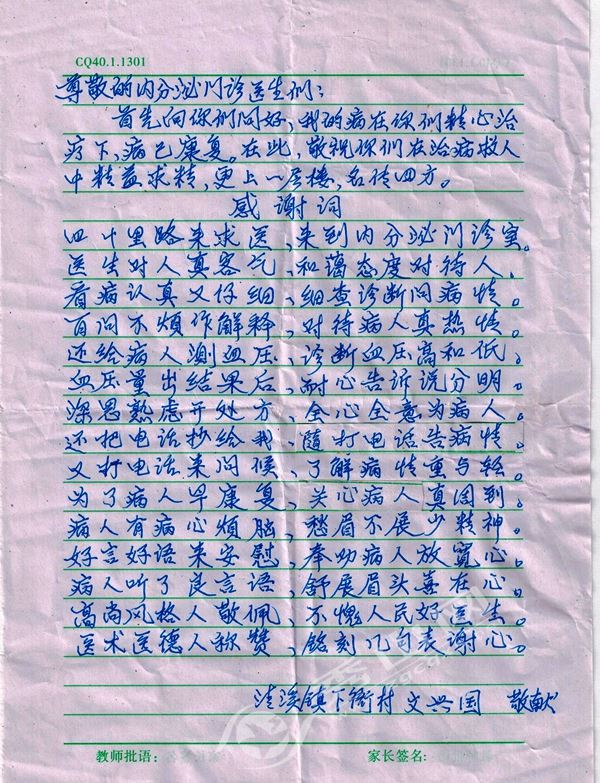 CQ40.1.1301
尊敬的内分泌门诊医生们：
首先向你们问好，我的病在你们精心治
疗下，病已康复。在此，敬祝你们在治病救人
中精益求精，更上一层楼，名传四方。
感谢词
四十里路来求医、来到内分泌门诊室。
医生对人真客气、和蔼态度对待人、
看病认真又仔细、细查诊断问病情。
百问不烦作解释、对待病人真热情。
还给病人测血压、诊断血压高和低、
血压量出结果后、耐心告诉说分明。
深思熟虑开处方、全心全意为病人。
还把电话抄给我、随打电话告病情。
又打电话来问候、了解病情重与轻。
为了病人早康复、关心病人真周到。
病人有病心烦脑、愁眉不展少精神。
好言好语来安慰、奉劝病人放宽心。
病人听了良言语、舒展眉头喜在心。
高尚风格人敬佩、不愧人民好医生。
医术医德人称赞、铭刻几句表谢心。
溪镇下衙村 文兴国 敬献
教师批语： 家长签名: